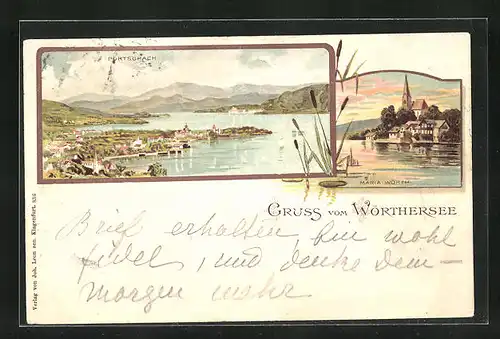 PÖRTSCHACH
MARIA WÖRTH
GRUSS VOM WÖRTHERSEE
Brief erhalten, bin wohl
fidel, und denke dem-
morgen mehr
Verlag von Joh. Leon sen. Klagenfurt. 856